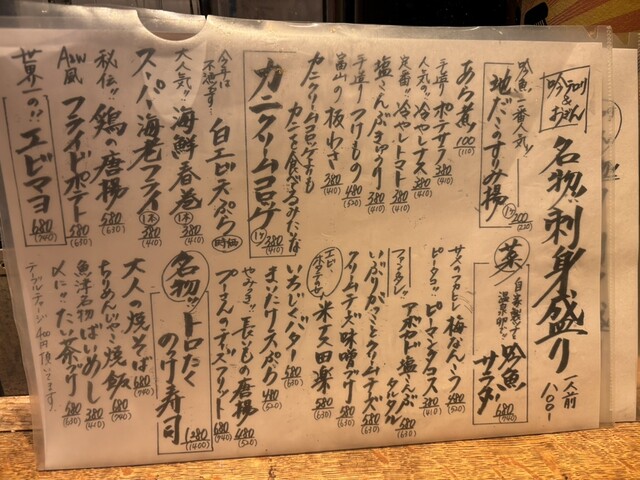 吟テロリ
&
おまかん
名物!!刺身盛り 一人前
八〇〇-
吟魚一番人気!!
地だこのすり身揚 1ヶ 200
(220)
あら煮 100
(110)
手造り ポテサラ 380
(410)
人気の!! 冷やしナス 380
(410)
定番!! 冷やしトマト 380
(410)
塩こんぶきゅうり 380
(410)
手造り つけもの 480
(520)
富山の 板わさ 380
(410)
カニクリームコロッケよりも
カニを食べてるみたいな
カニクリームコロッケ 1ヶ 380
(410)
今年は
不漁です!
白エビ天ぷら 時価
大人気!! 海鮮春巻 1本 380
(410)
スーパー海老フライ 1本 380
(410)
秘伝!! 鶏の唐揚 580
(630)
A&W風 フライドポテト 580
(630)
世界一の!! エビマヨ 680
(740)
菜
自家製ツナと
温泉卵の!!
吟魚
サラダ 680
(740)
サメのフカヒレ 梅なんこつ 480
(520)
ピータコ!! ピーマンタコス 380
(410)
アボカド塩こんぶ
タルタル 580
(630)
いぶりがっことクリームチーズ 580
(630)
クリームチーズ味噌づけ 580
(630)
米茄田楽 580
(630)
いちじくバター 580
(630)
まいたけ天ぷら 480
(520)
やみつき!! 長いもの唐揚 480
(520)
プーさんのチーズフリット 680
(740)
名物!!
トロたく
のっけ寿司 1280
(1400)
大人の焼そば 680
(740)
ちりめんじゃこ焼飯 680
(740)
魚洋名物 ばいめし 380
(410)
〆に!! たい茶づけ 580
(630)
テーブルチャージ 400円頂いてます